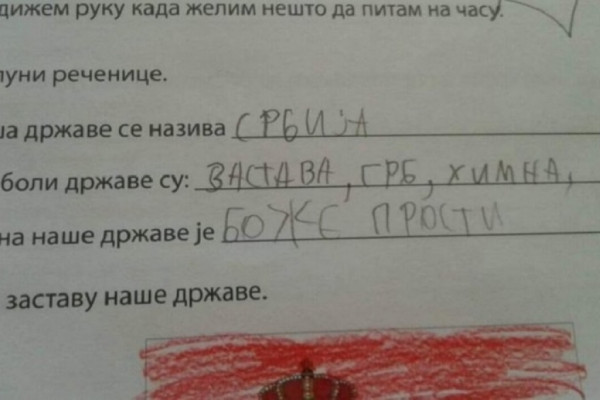 дижем руку када желим нешто да питам на часу.
пуни реченице.
ша држава се назива СРБИЈА
боли државе су: ЗАСТАВА, ГРБ, ХИМНА,
на наше државе је БОЖЕ ПРОСТИ
заставу наше државе.